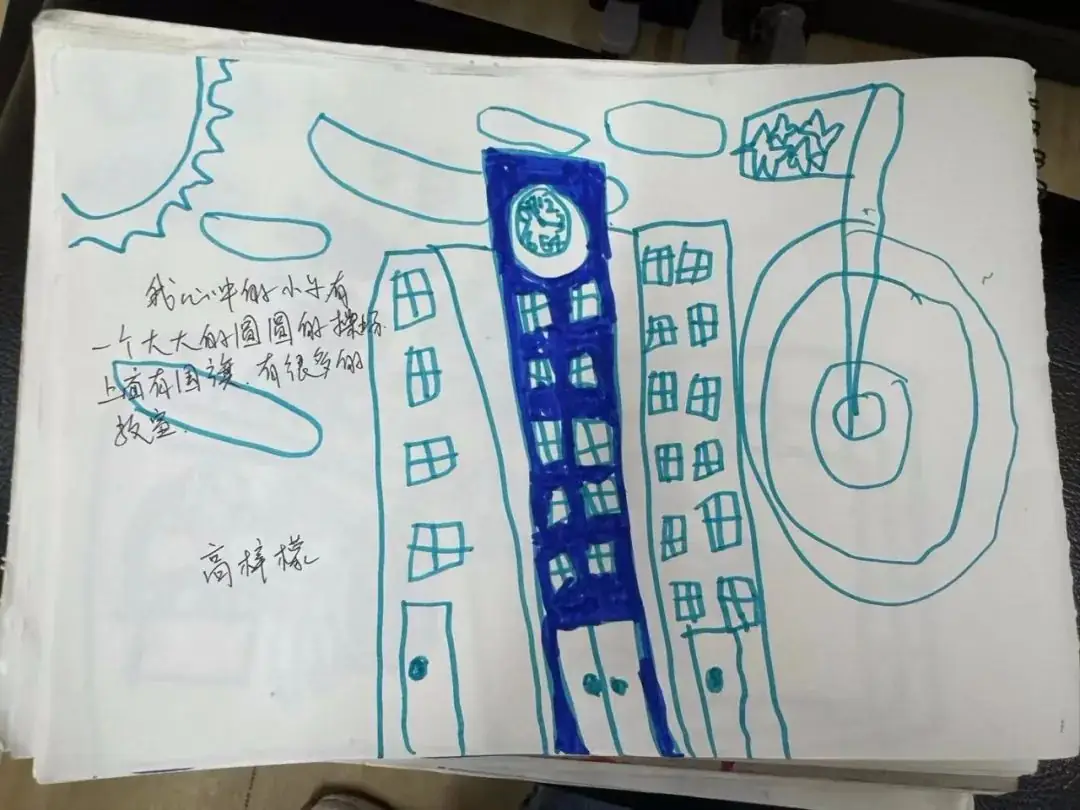 我心中的小学有
一个大大的圆圆的操场.
上面有国旗.有很多的
教室.
高梓檬